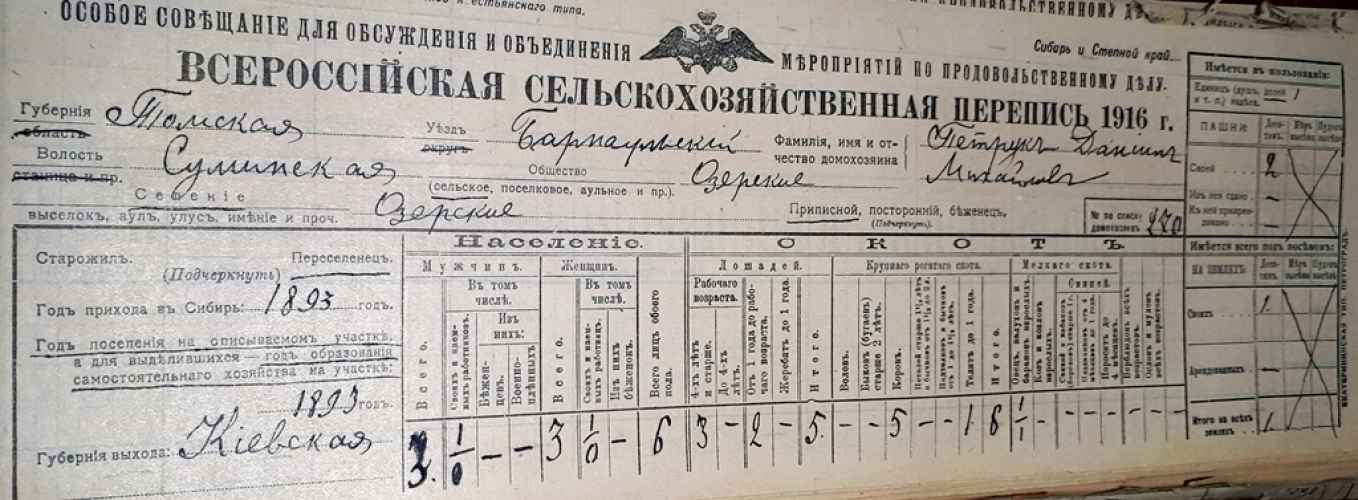 естьянскаго типа.
ОСОБОЕ СОВѢЩАНІЕ ДЛЯ ОБСУЖДЕНІЯ И ОБЪЕДИНЕНІЯ МѢРОПРІЯТІЙ ПО ПРОДОВОЛЬСТВЕННОМУ ДѢЛУ.
Сибирь и Степной край.
ВСЕРОССІЙСКАЯ СЕЛЬСКОХОЗЯЙСТВЕННАЯ ПЕРЕПИСЬ 1916 г.
Губернія Томская Уѣздъ Барнаульскій Фамилія, имя и от- Петрукъ Даніилъ
область округъ чество домохозяина Михайловъ
Волость Суминская Общество Озерские
станица и пр. (сельское, поселковое, аульное и пр.)
Селеніе Озерские
выселокъ, аулъ, улусъ, имѣніе и проч.
Приписной, посторонній, бѣженецъ.
(Подчеркнуть).
№ по списку домохозяевъ 270
Старожилъ. Переселенецъ.
(Подчеркнуть)
Годъ прихода въ Сибирь: 1893 годъ.
Годъ поселенія на описываемомъ участкѣ,
а для выдѣлившихся — годъ образованія
самостоятельнаго хозяйства на участкѣ:
1893 годъ.
Губернія выхода: Кіевская
Населеніе.
Мужчинъ.
Всего.
Въ томъ числѣ.
Своихъ и наемныхъ работниковъ.
Изъ нихъ:
Бѣженцевъ.
Военноплѣнныхъ
Женщинъ.
Всего.
Въ томъ числѣ.
Своихъ и наемныхъ работниц.
Изъ нихъ бѣженокъ.
Всего лицъ обоего пола.
3 1/0 - - 3 1/0 - 6
СКОТЪ.
Лошадей.
Рабочаго возраста.
4-хъ лѣтъ и старше.
До 4-хъ лѣтъ.
Отъ 1 года до рабочаго возраста.
Жеребятъ до 1 года.
Итого.
3 - 2 - 5
Крупнаго рогатаго скота.
Воловъ.
Быковъ (бугаевъ) старше 2 лѣтъ.
Коровъ.
Телятъ до 1 года.
Итого.
- - 5 - - 1 6
Мелкаго скота.
Свиней.
1/1 - - - - - -
Имѣется въ пользованіи:
Единицъ (душ. долей и т. п.) надѣла. 1
ПАШНИ Деся-
тинъ.
Своей 2
Имѣется всего подъ посѣвомъ:
НА ЗЕМЛЯХЪ Деся-
тинъ.
Своихъ 1.
Арендованныхъ —
Итого на всѣхъ земляхъ 1.